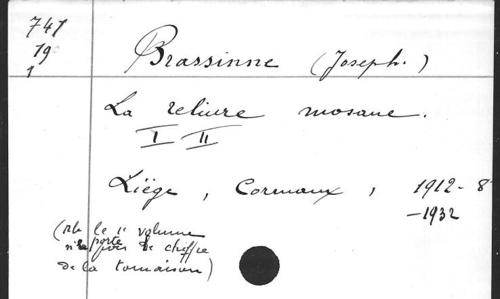 741
19
1
Brassinne (Joseph.)
La reliure mosane.
I II
Liège, Cormaux, 1912-8°
-1932
(Nb le 1er volume
n'a porte pas de chiffre
de la tomaison)